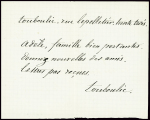 Louboulie, rue Lepelletier, trente trois.
adèle, famille bien portantes
donnez nouvelles des amis.
lettres pas reçues.
Louboulie.